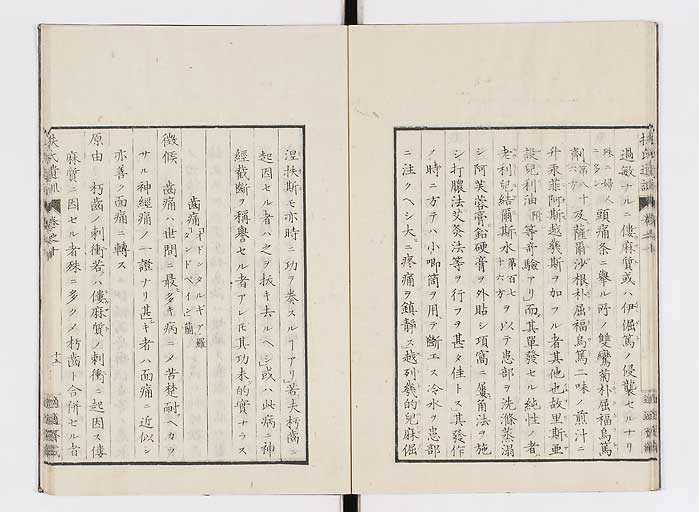 過敏ナルニ僂麻質或ハ伊倔篤ノ侵襲セルナリ
殊ニ婦人ニ多シ 頭痛条ニ舉ル所ノ雙鸞菊朴屈福烏篤
劑 第八十六方 及薩爾沙根朴屈福烏篤二味ノ煎汁ニ
升汞菲阿斯越幾斯ヲ加フル者其他也故里斯亜
設兒利油 等奇驗アリ而其單發セル純性ノ者
老利兒結爾斯水 第百七十六方 ヲ以テ患部ヲ洗滌蒸溻
シ阿芙蓉膏鉛硬膏ヲ外貼シ項窩ニ角法ヲ施
シ打膿法艾灸法等ヲ行フヲ甚タ佳トス其發作
ノ時ニ方テハ小喞筒ヲ用テ断エス冷水ヲ患部
ニ注クヘシ大ニ疼痛ヲ鎮靜ス越列幾的兒麻倔
涅扶斯モ亦時ニ功ヲ奏スルーアリ若夫朽齒ニ
起因セル者ハ之ヲ抜キ去ルヘシ或ハ此病ニ神
經截斷ヲ稱譽セル者アレモ其功未的實ナラス
齒痛 ヲドンタルギア 羅 タンドペイン 蘭
徴候 齒痛ハ世間ニ最多キ病ニメ苦楚耐ヘカヲ
サル神經痛ノ一證ナリ甚キ者ハ面痛ニ近似シ
亦善ク面痛ニ轉ス
原由 朽齒ノ刺衝若ハ僂麻質ノ刺衝ニ起因ス僂
麻質ニ因セル者殊ニ多クメ朽齒ト合併セル者